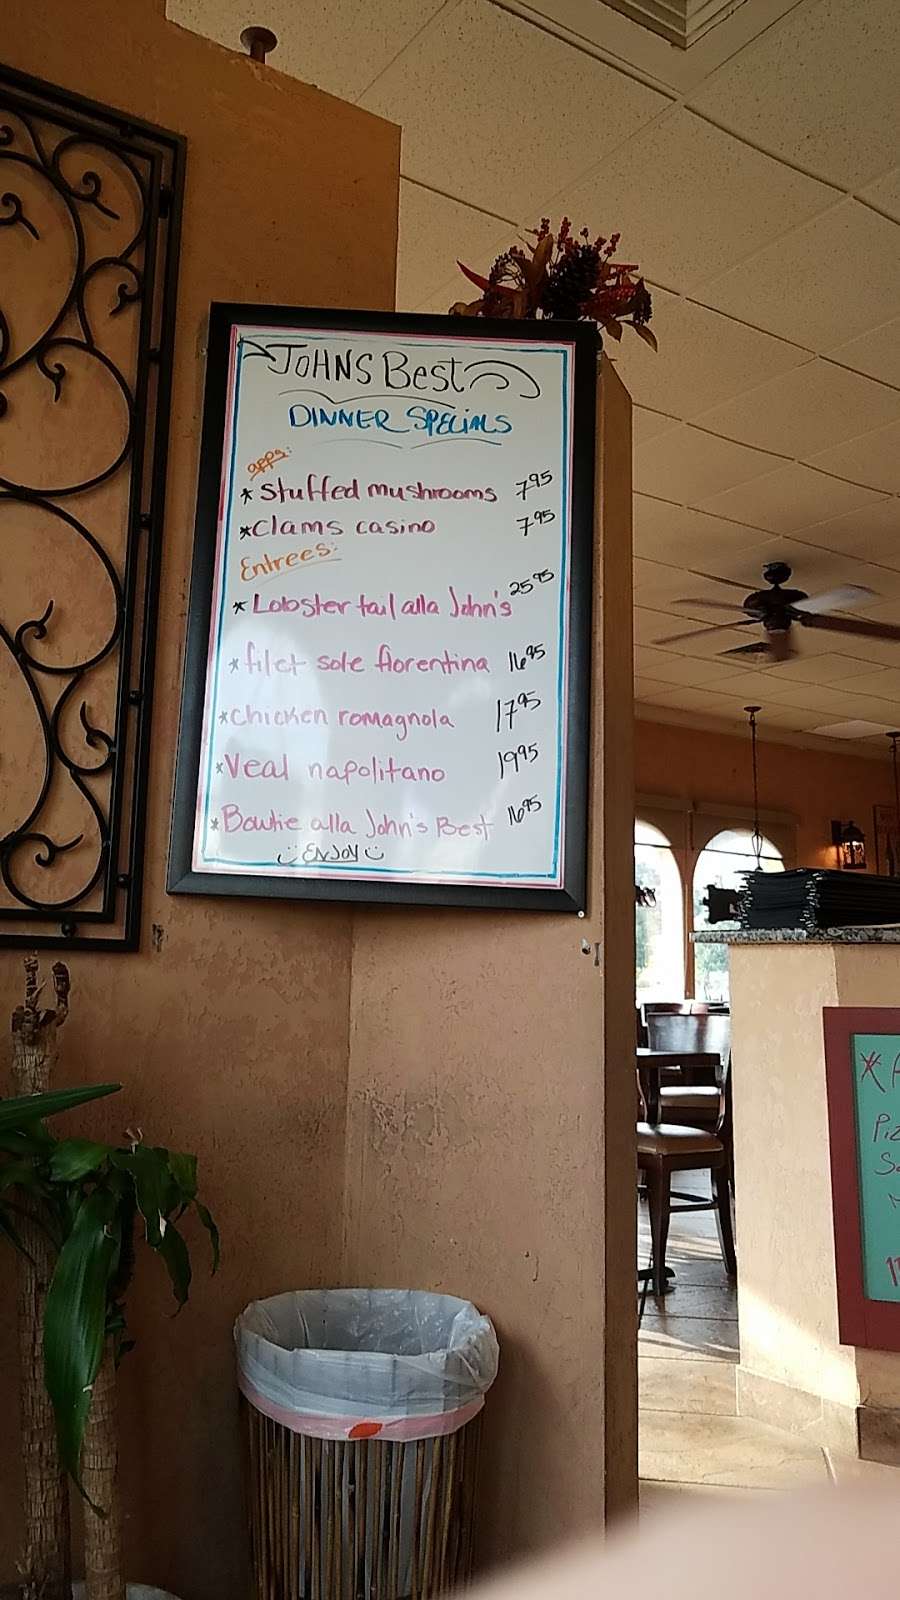 JOHNS BEST
DINNER SPECIALS
apps:
* Stuffed mushrooms 7.95
* Clams casino 7.95
Entrees:
* Lobster tail alla John's 25.95
* filet sole fiorentina 16.95
* Chicken romagnola 17.95
* Veal napolitano 19.95
* Bowtie alla John's Best 16.95
ENJOY